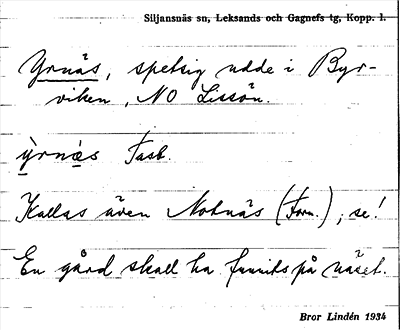 Siljansnäs sn, Leksands och Gagnefs tg, Kopp. l.
Yrnäs, spetsig udde i Byr-
viken, NO Lissön.
ỳrnæs Fastb.
Kallas även Notnäs (Forn.), se!
En gård skall ha funnits på näset.
Bror Lindén 1934